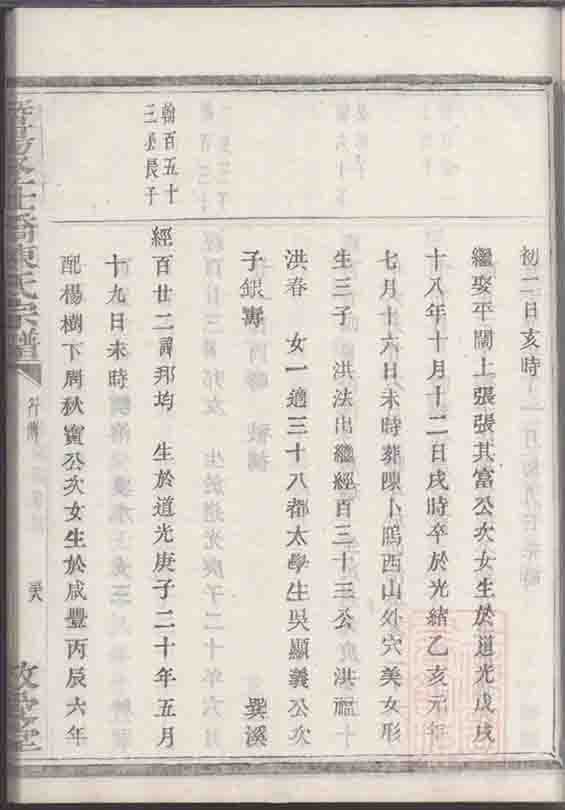 初二日亥時
繼娶平闊上張張其富公次女生於道光戊戌
十八年十月十二日戌時卒於光緒乙亥元年
七月十六日未時葬陳卜塢西山外穴美女形
生三子 洪法出繼經百三十三公 洪福
洪春 女一適三十八都太學生吳顯義公次
子銀壽 巽溪
翰百五十
三公長子
經百廿二諱邦均 生於道光庚子二十年五月
十九日未時
配楊樹下周秋寶公次女生於咸豐丙辰六年
橋陳氏宗譜
行傳